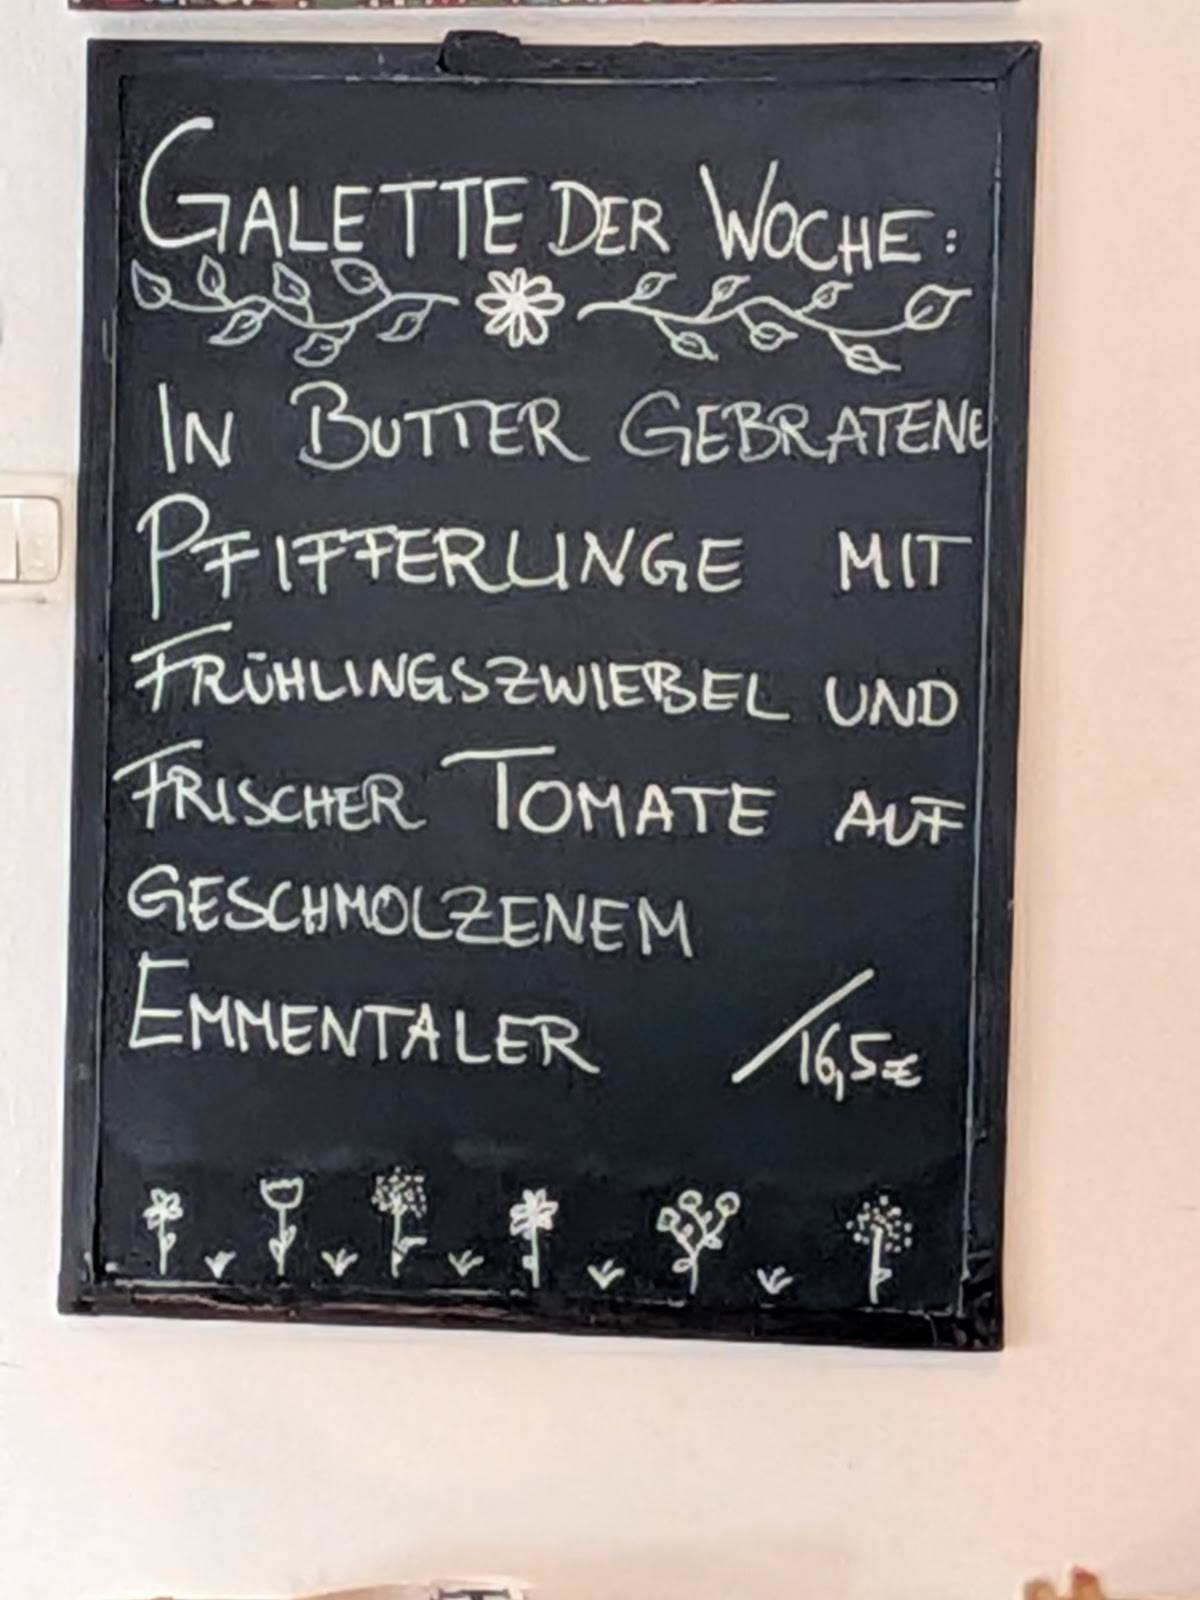 GALETTE DER WOCHE:
IN BUTTER GEBRATENE
PFIFFERLINGE MIT
FRÜHLINGSZWIEBEL UND
FRISCHER TOMATE AUF
GESCHMOLZENEM
EMMENTALER /16,5€